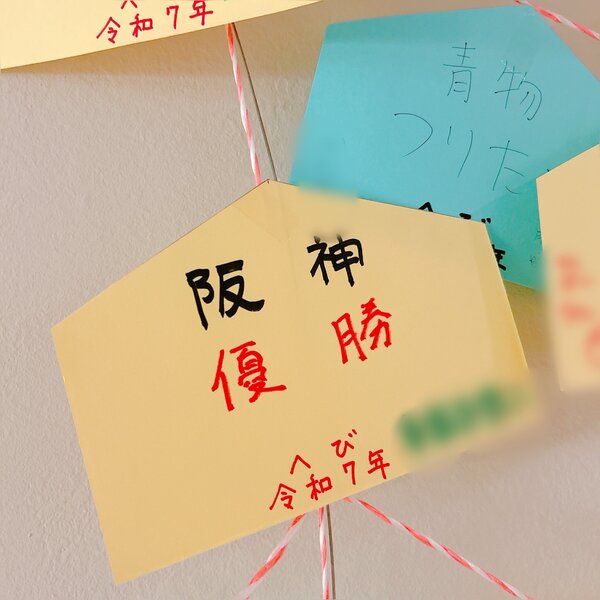 へ
令和7年
青物
つりた
へび
阪神
優勝
へび
令和7年